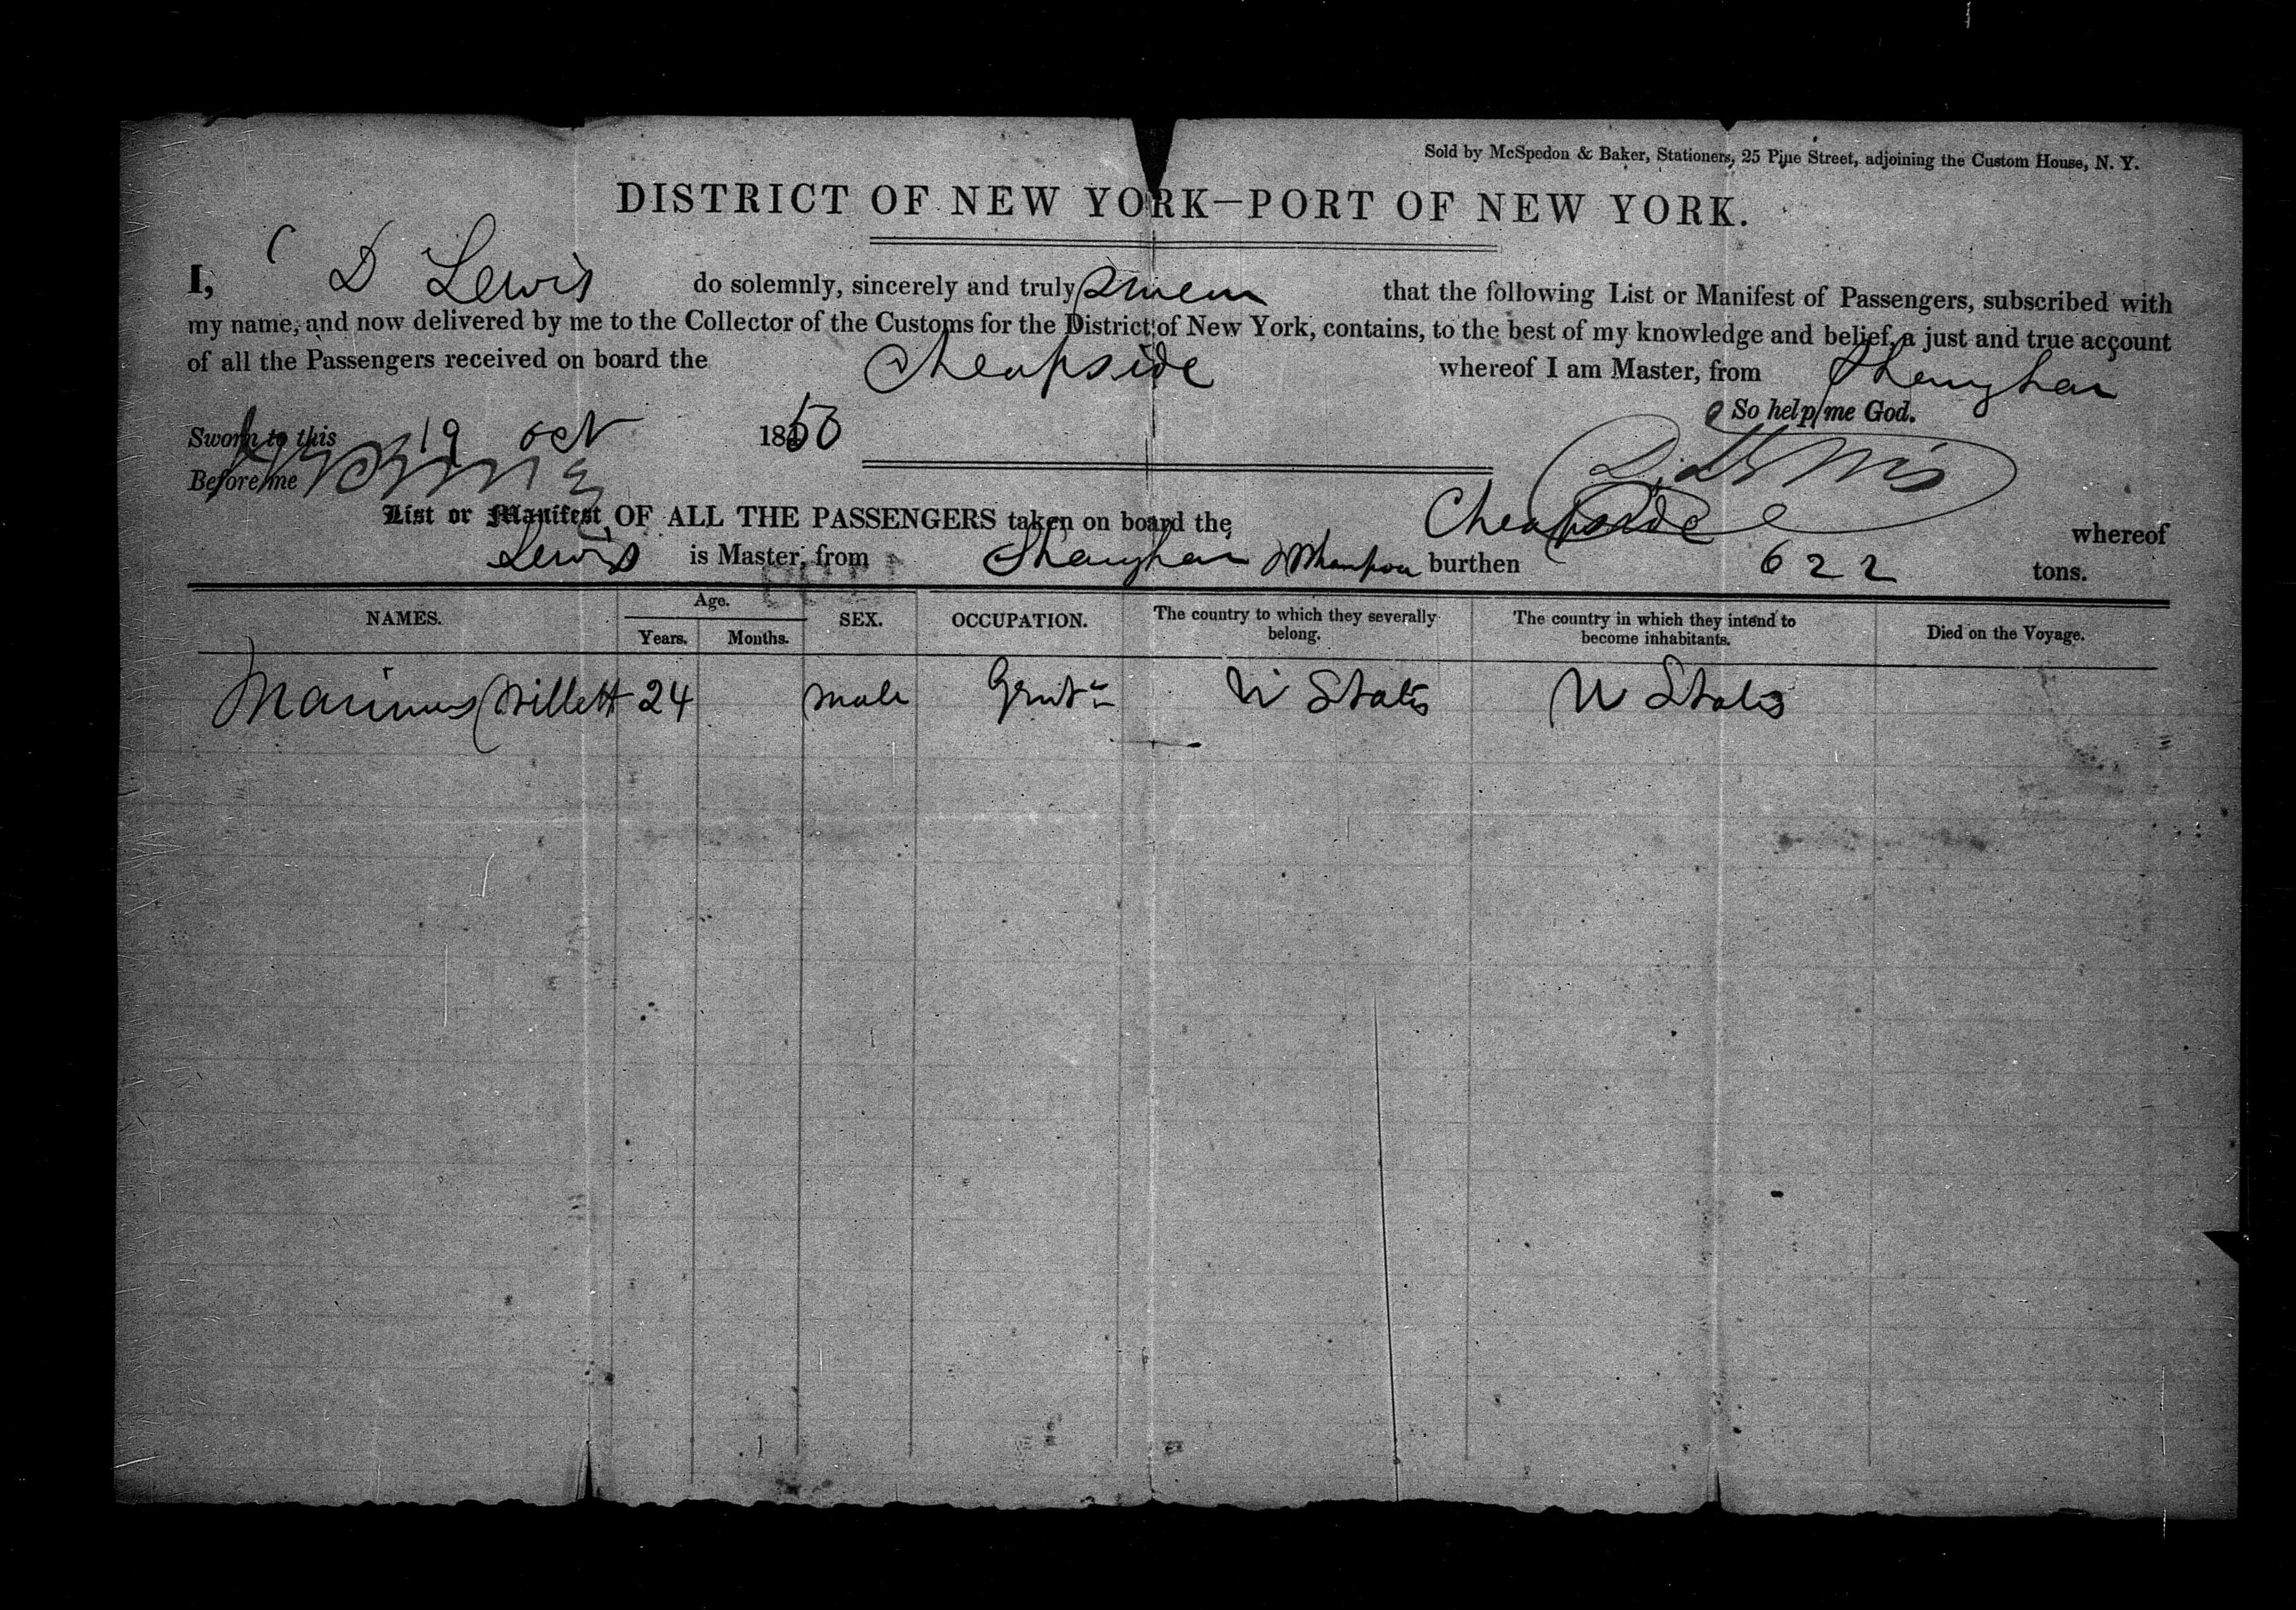 Sold by McSpedon & Baker, Stationers, 25 Pine Street, adjoining the Custom House, N. Y.
DISTRICT OF NEW YORK—PORT OF NEW YORK.
I, D Lewis do solemnly, sincerely and truly swear that the following List or Manifest of Passengers, subscribed with
my name, and now delivered by me to the Collector of the Customs for the District of New York, contains, to the best of my knowledge and belief, a just and true account
of all the Passengers received on board the Cheapside whereof I am Master, from Shanghai
So help me God.
Sworn to this 19 Oct 1850
D. Lewis
Before me
List or Manifest OF ALL THE PASSENGERS taken on board the Cheapside whereof
Lewis is Master, from Shanghai & Whampoa burthen 622 tons.
NAMES. Age. Years. Months. SEX. OCCUPATION. The country to which they severally belong. The country in which they intend to become inhabitants. Died on the Voyage.
Marinus Willett 24 male Gentn U States U States